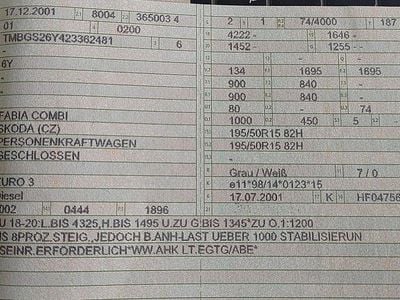 17.12.2001 8004 365003 4 2 1 74/4000 187
01 0200 4222 - 1646 -
TMBGS26Y423362481 6 1452 - 1255 - -
- - - -
6Y - 134 1695 1695
- 900 840 -
900 840 -
80 - 74
FABIA COMBI 1000 450 5 -
SKODA (CZ) 195/50R15 82H
PERSONENKRAFTWAGEN 195/50R15 82H
GESCHLOSSEN -
- Grau / Weiß 7 / 0
EURO 3 e11*98/14*0123*15
Diesel 17.07.2001 K HF04756
002 0444 1896
U 18-20:L.BIS 4325,H.BIS 1495 U.ZU G:BIS 1345*ZU O.1:1200
IS 8PROZ.STEIG.,JEDOCH B.ANH-LAST UEBER 1000 STABILISIERUN
SEINR.ERFORDERLICH*WW.AHK LT.EGTG/ABE*